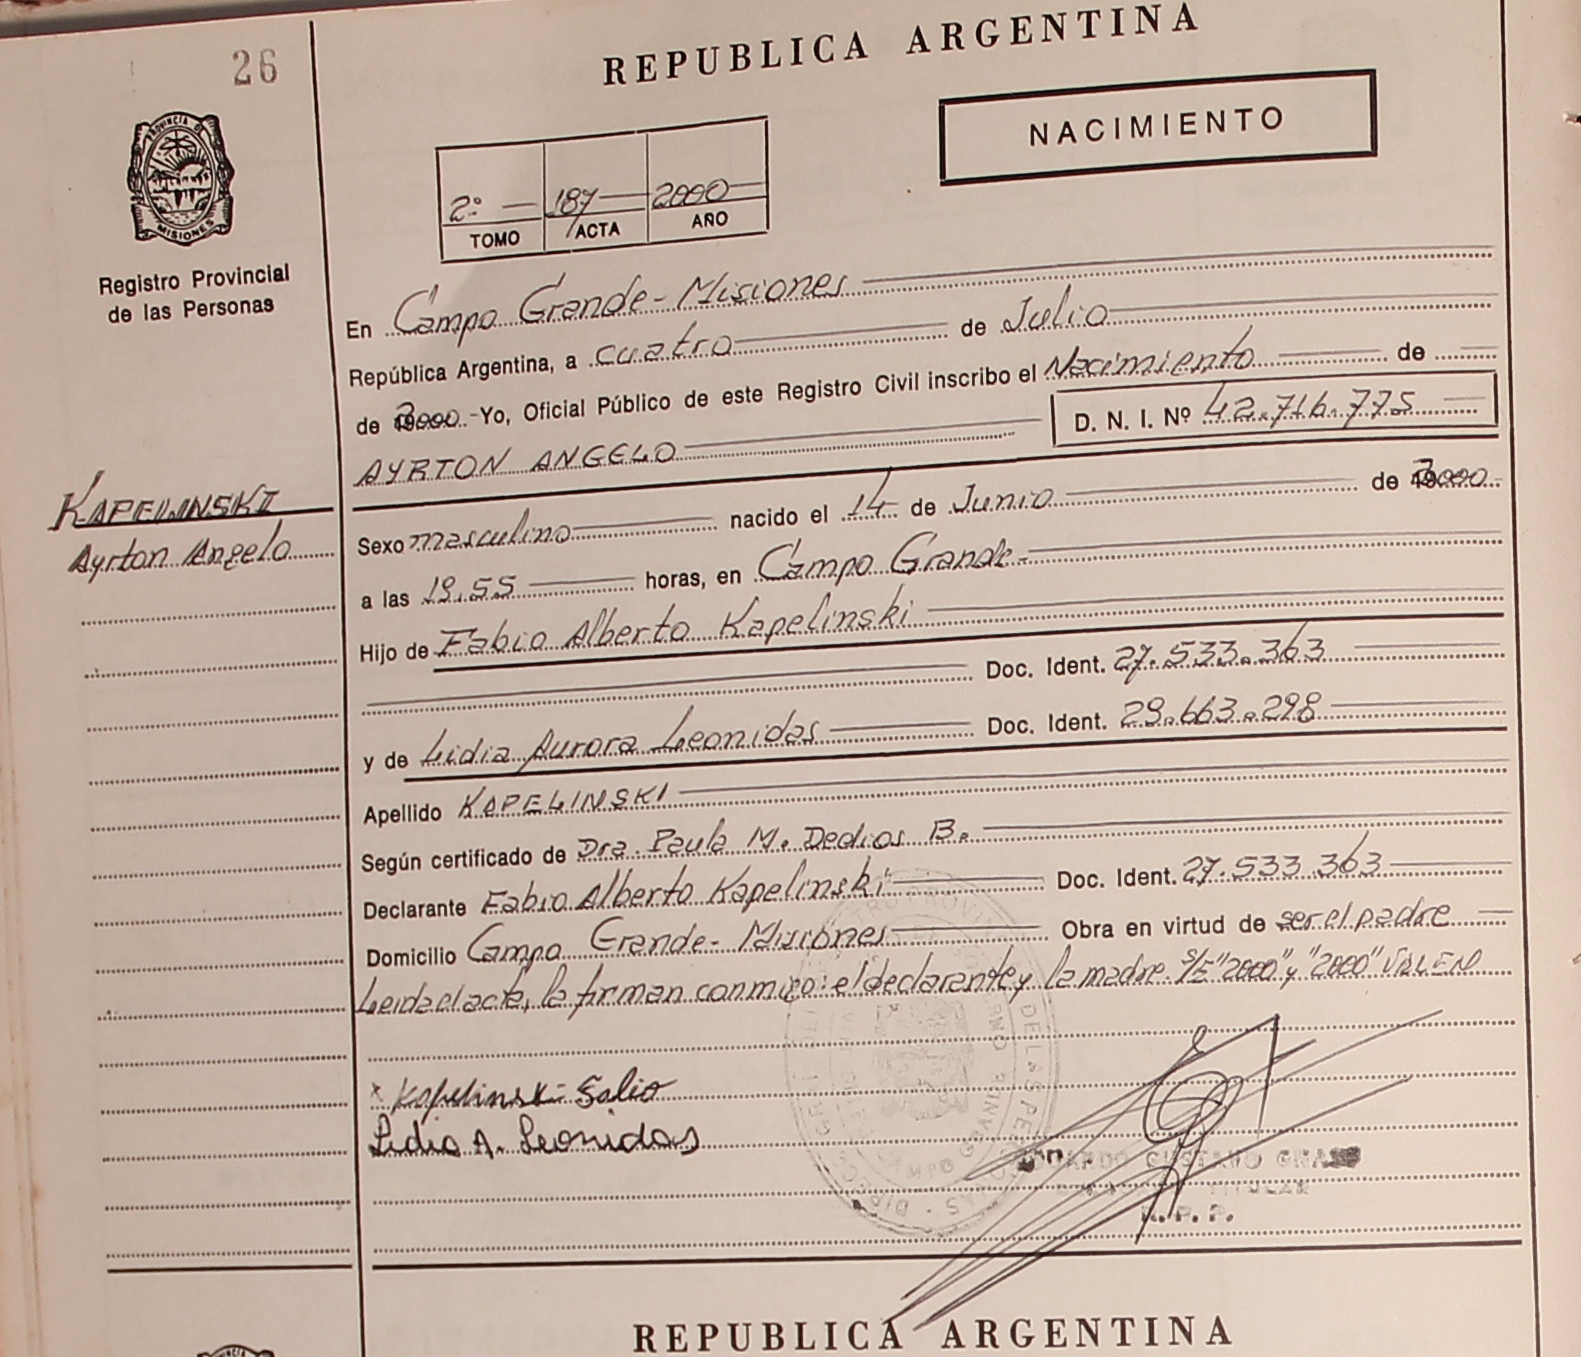 26
REPUBLICA ARGENTINA
NACIMIENTO
PROVINCIA DE
MISIONES
Registro Provincial
de las Personas
2º 187 2000
TOMO ACTA AÑO
En Campo Grande - Misiones
República Argentina, a cuatro de Julio
de 2000 - Yo, Oficial Público de este Registro Civil inscribo el Nacimiento de
AYRTON ANGELO D. N. I. Nº 42.716.775
KAPELINSKI
Ayrton Angelo
Sexo masculino nacido el 14 de Junio de 2000
a las 19.55 horas, en Campo Grande
Hijo de Fabio Alberto Kapelinski
Doc. Ident. 27.533.363
y de Lidia Aurora Leonidas Doc. Ident. 29.663.298
Apellido KAPELINSKI
Según certificado de Dra. Paula M. Dedios B.
Declarante Fabio Alberto Kapelinski Doc. Ident. 27.533.363
Domicilio Campo Grande - Misiones Obra en virtud de ser el padre
Leida el acta, la firman conmigo: el declarante y la madre. S/E "2000" y "2000" VALEN
x Kapelinski Fabio
Lidia A. Leonidas
GUSTAVO
TITULAR
R. P. P.
CAMPO GRANDE
REPUBLICA ARGENTINA